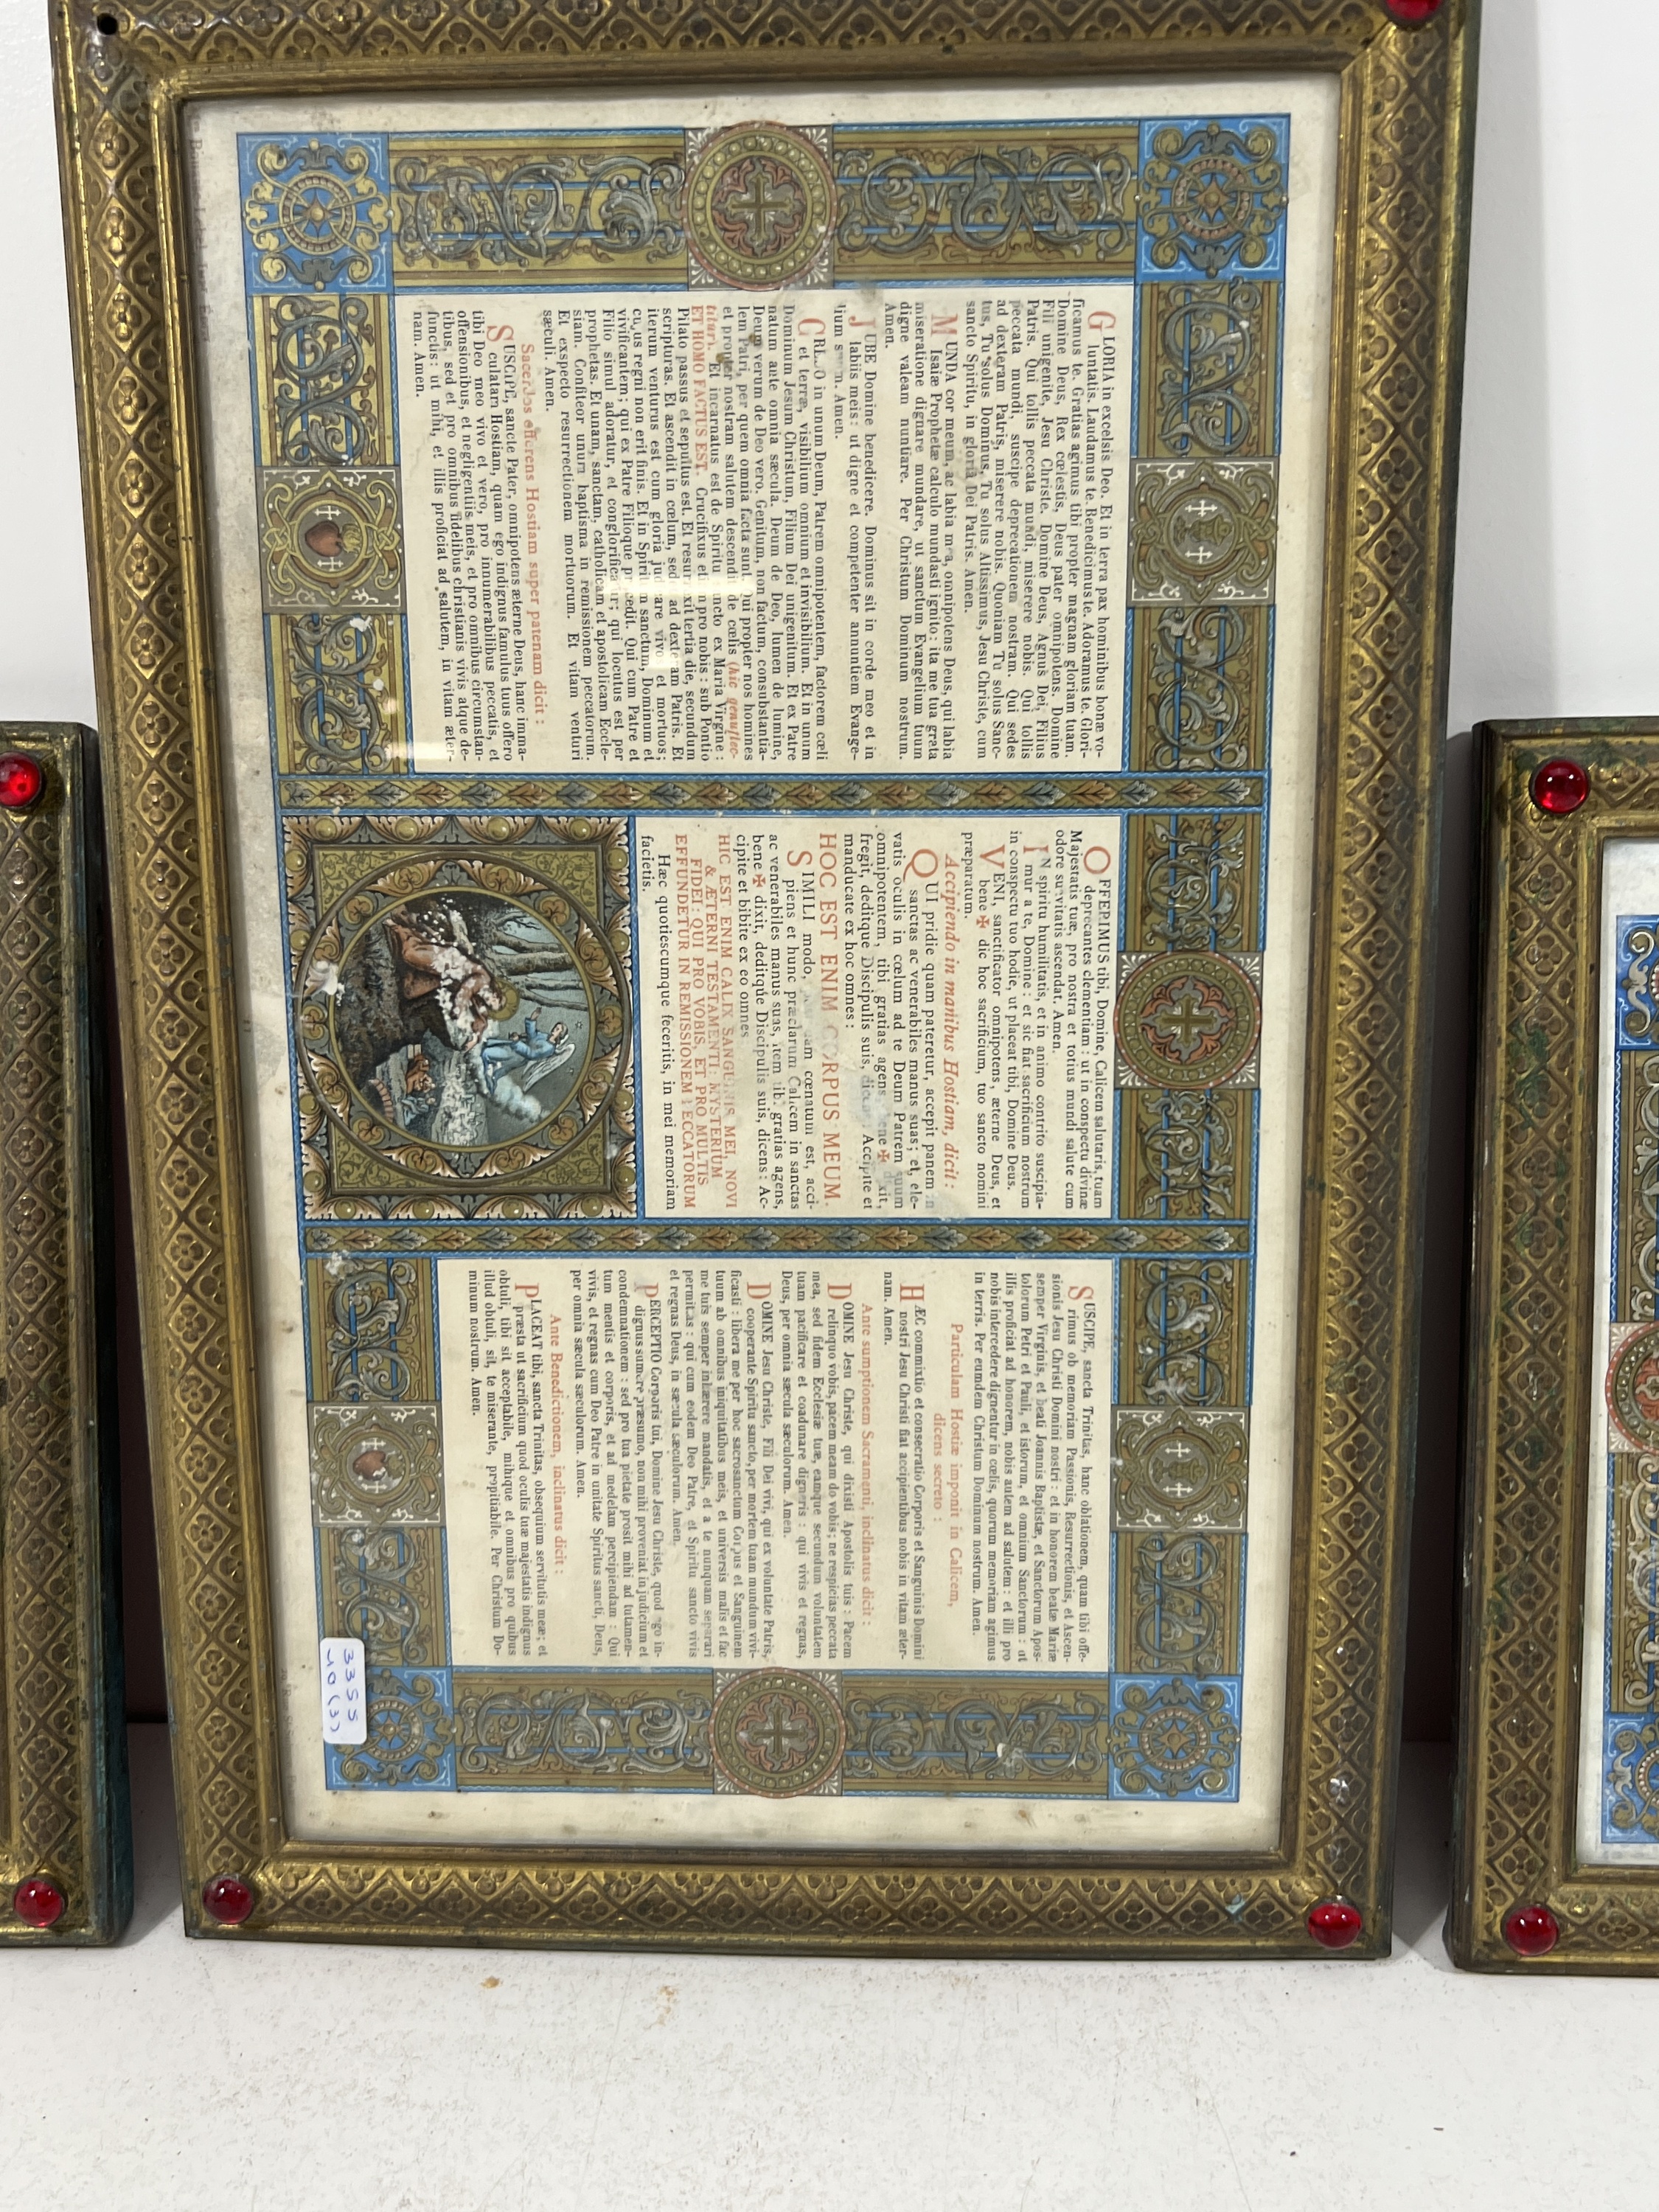 GLORIA in excelsis Deo. Et in terra pax hominibus bonæ vo-
luntatis. Laudamus te. Benedicimus te. Adoramus te. Glori-
ficamus te. Gratias agimus tibi propter magnam gloriam tuam.
Domine Deus, Rex cœlestis, Deus pater omnipotens. Domine
Fili unigenite, Jesu Christe. Domine Deus, Agnus Dei, Filius
Patris. Qui tollis peccata mundi, miserere nobis. Qui tollis
peccata mundi, suscipe deprecationem nostram. Qui sedes
ad dexteram Patris, miserere nobis. Quoniam Tu solus Sanc-
tus, Tu solus Dominus, Tu solus Altissimus, Jesu Christe, cum
sancto Spiritu, in gloria Dei Patris. Amen.
MUNDA cor meum, ac labia mea, omnipotens Deus, qui labia
Isaiæ Prophetæ calculo mundasti ignito: ita me tua grata
miseratione dignare mundare, ut sanctum Evangelium tuum
digne valeam nuntiare. Per Christum Dominum nostrum.
Amen.
JUBE Domine benedicere. Dominus sit in corde meo et in
labiis meis: ut digne et competenter annuntiem Evange-
lium Amen.
in unum Deum, Patrem omnipotentem, factorem cœli
et terræ, visibilium omnium et invisibilium. Et in unum
Dominum Jesum Christum, Filium Dei unigenitum. Et ex Patre
natum ante omnia sæcula. Deum de Deo, lumen de lumine,
Deum verum de Deo vero. Genitum, non factum, consubstantia-
lem Patri, per quem omnia facta sunt. Qui propter nos homines
et propter nostram salutem descendit de cœlis (hic genuflec-
titur). Et incarnatus est de Spiritu sancto ex Maria Virgine:
ET HOMO FACTUS EST. Crucifixus etiam pro nobis: sub Pontio
Pilato passus et sepultus est. Et resurrexit tertia die, secundum
scripturas. Et ascendit in cœlum, sedet ad dexteram Patris. Et
iterum venturus est cum gloria judicare vivos et mortuos;
cujus regni non erit finis. Et in Spiritum sanctum, Dominum et
vivificantem; qui ex Patre Filioque procedit. Qui cum Patre et
Filio simul adoratur, et conglorificatur; qui locutus est per
prophetas. Et unam, sanctam, catholicam et apostolicam Eccle-
siam. Confiteor unum baptisma in remissionem peccatorum.
Et exspecto resurrectionem mortuorum. Et vitam venturi
sæculi. Amen.
Sacerdos offerens Hostiam super patenam dicit:
SUSCIPE, sancte Pater, omnipotens æterne Deus, hanc imma-
culatam Hostiam, quam ego indignus famulus tuus offero
tibi Deo meo vivo et vero, pro innumerabilibus peccatis, et
offensionibus, et negligentiis meis, et pro omnibus circumstan-
tibus, sed et pro omnibus fidelibus christianis vivis atque de-
functis: ut mihi, et illis proficiat ad salutem, in vitam æter-
nam. Amen.
OFFERIMUS tibi, Domine, Calicem salutaris, tuam
deprecantes clementiam: ut in conspectu divinæ
Majestatis tuæ, pro nostra et totius mundi salute cum
odore suavitatis ascendat. Amen.
IN spiritu humilitatis, et in animo contrito suscipia-
mur a te, Domine: et sic fiat sacrificium nostrum
in conspectu tuo hodie, ut placeat tibi, Domine Deus.
VENI, sanctificator omnipotens, æterne Deus, et
bene ✠ dic hoc sacrificium, tuo sancto nomini
præparatum.
Accipiendo in manibus Hostiam, dicit:
QUI pridie quam pateretur, accepit panem in
sanctas ac venerabiles manus suas; et, ele-
vatis oculis in cœlum ad te Deum Patrem suum
omnipotentem, tibi gratias agens, bene ✠ dixit,
fregit, deditque Discipulis suis, dicens: Accipite et
manducate ex hoc omnes:
HOC EST ENIM CORPUS MEUM.
SIMILI modo, cœnatum est, acci-
piens et hunc præclarum Calicem in sanctas
ac venerabiles manus suas, item tibi gratias agens,
bene ✠ dixit, deditque Discipulis suis, dicens: Ac-
cipite et bibite ex eo omnes
HIC EST ENIM CALIX SANGUINIS MEI, NOVI
& ÆTERNI TESTAMENTI: MYSTERIUM
FIDEI: QUI PRO VOBIS, ET PRO MULTIS
EFFUNDETUR IN REMISSIONEM PECCATORUM
Hæc quotiescumque feceritis, in mei memoriam
facietis.
SUSCIPE, sancta Trinitas, hanc oblationem, quam tibi offe-
rimus ob memoriam Passionis, Resurrectionis, et Ascen-
sionis Jesu Christi Domini nostri: et in honorem beatæ Mariæ
semper Virginis, et beati Joannis Baptistæ, et Sanctorum Apos-
tolorum Petri et Pauli, et istorum, et omnium Sanctorum: ut
illis proficiat ad honorem, nobis autem ad salutem: et illi pro
nobis intercedere dignentur in cœlis, quorum memoriam agimus
in terris. Per eumdem Christum Dominum nostrum. Amen.
Particulam Hostiæ imponit in Calicem,
dicens secreto:
HÆC commixtio et consecratio Corporis et Sanguinis Domini
nostri Jesu Christi fiat accipientibus nobis in vitam æter-
nam. Amen.
Ante sumptionem Sacramenti, inclinatus dicit:
DOMINE Jesu Christe, qui dixisti Apostolis tuis: Pacem
relinquo vobis, pacem meam do vobis; ne respicias peccata
mea, sed fidem Ecclesiæ tuæ, eamque secundum voluntatem
tuam pacificare et coadunare digneris: qui vivis et regnas,
Deus, per omnia sæcula sæculorum. Amen.
DOMINE Jesu Christe, Fili Dei vivi, qui ex voluntate Patris,
cooperante Spiritu sancto, per mortem tuam mundum vivi-
ficasti: libera me per hoc sacrosanctum Corpus et Sanguinem
tuum ab omnibus iniquitatibus meis, et universis malis et fac
me tuis semper inhærere mandatis, et a te nunquam separari
permittas: qui cum eodem Deo Patre, et Spiritu sancto vivis
et regnas Deus, in sæcula sæculorum. Amen.
PERCEPTIO Corporis tui, Domine Jesu Christe, quod ego in-
dignus sumere præsumo, non mihi proveniat in judicium et
condemnationem: sed pro tua pietate prosit mihi ad tutamen-
tum mentis et corporis, et ad medelam percipiendam: Qui
vivis, et regnas cum Deo Patre in unitate Spiritus sancti, Deus,
per omnia sæcula sæculorum. Amen.
Ante Benedictionem, inclinatus dicit:
PLACEAT tibi, sancta Trinitas, obsequium servitutis meæ; et
præsta ut sacrificium quod oculis tuæ majestatis indignus
obtuli, tibi sit acceptabile, mihique et omnibus pro quibus
illud obtuli, sit, te miserante, propitiabile. Per Christum Do-
minum nostrum. Amen.
3355
10 (3)